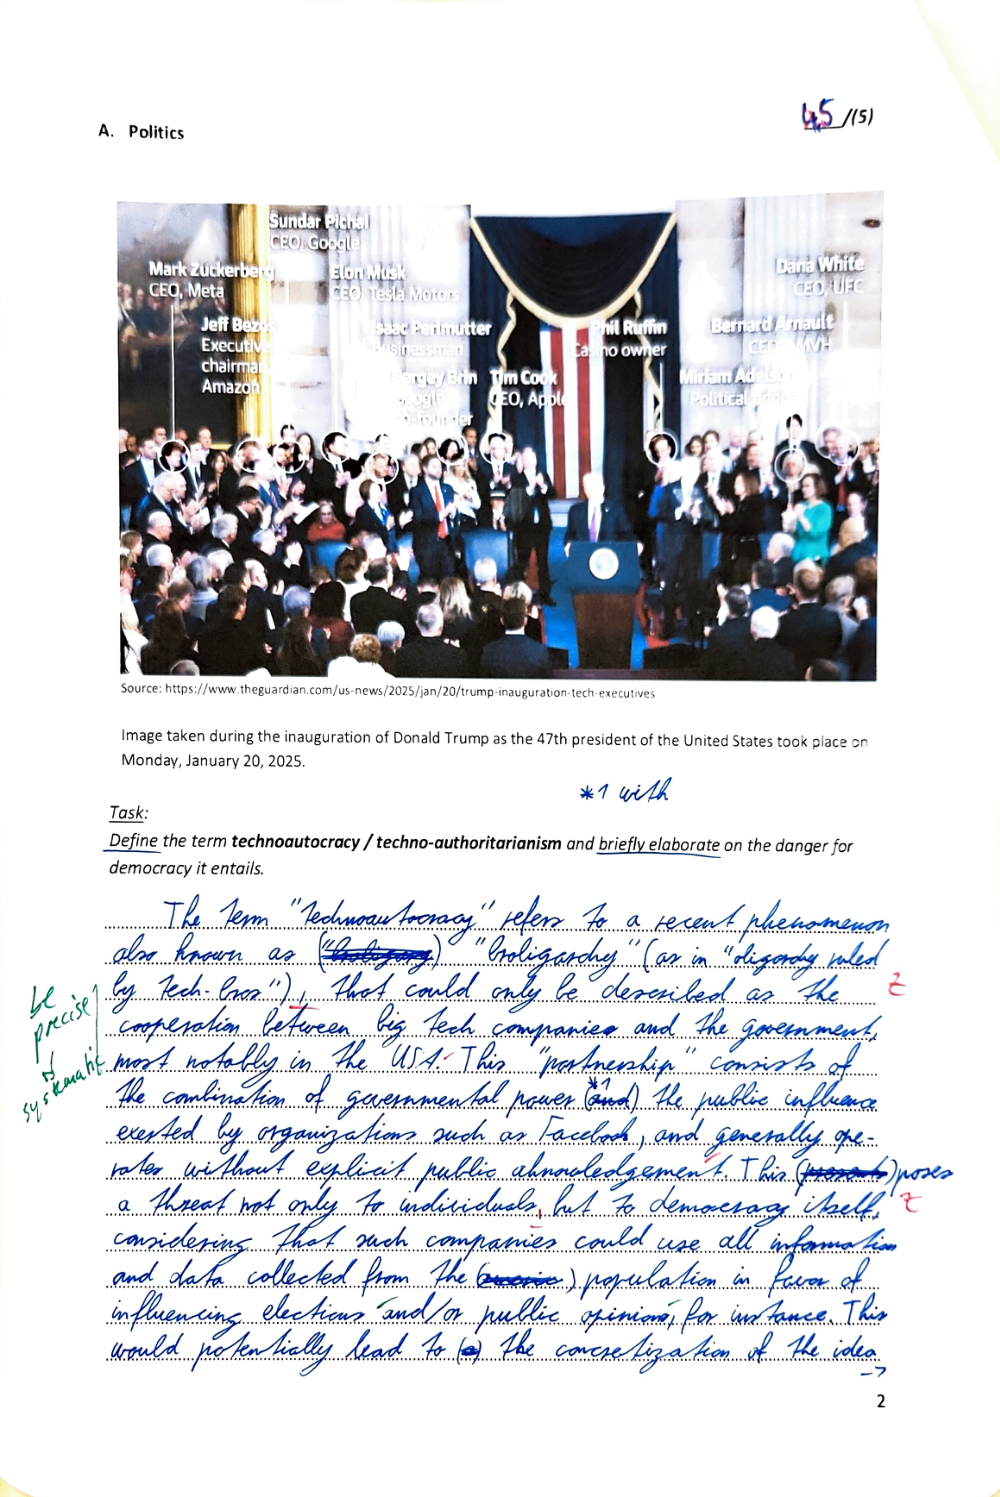 A. Politics
4,5 /(5)
Sundar Pichai
CEO, Google
Mark Zuckerberg
CEO, Meta
Elon Musk
CEO Tesla Motors
Dana White
CEO, UFC
Jeff Bezos
Executive
chairman
Amazon
Isaac Perlmutter
Businessman
Phil Ruffin
Casino owner
Bernard Arnault
CEO, LVMH
Sergey Brin
Google
co-founder
Tim Cook
CEO, Apple
Miriam Adelson
Political donor
Source: https://www.theguardian.com/us-news/2025/jan/20/trump-inauguration-tech-executives
Image taken during the inauguration of Donald Trump as the 47th president of the United States took place on
Monday, January 20, 2025.
*1 with
Task:
Define the term technoautocracy / techno-authoritarianism and briefly elaborate on the danger for
democracy it entails.
The term "technoautocracy" refers to a recent phenomenon
also known as "broligarchy" (as in "oligarchy ruled
by tech-bros"), that could only be described as the Z
be precise & systematic
cooperation between big tech companies and the government,
most notably in the USA. This "partnership" consists of
the combination of governmental power (and) *1 the public influence
exerted by organizations such as Facebook, and generally ope-
rates without explicit public acknowledgement. This poses
a threat not only to individuals, but to democracy itself, Z
considering that such companies could use all information
and data collected from the population in favor of
influencing elections and/or public opinion, for instance. This
would potentially lead to (a) the concretization of the idea
->
2